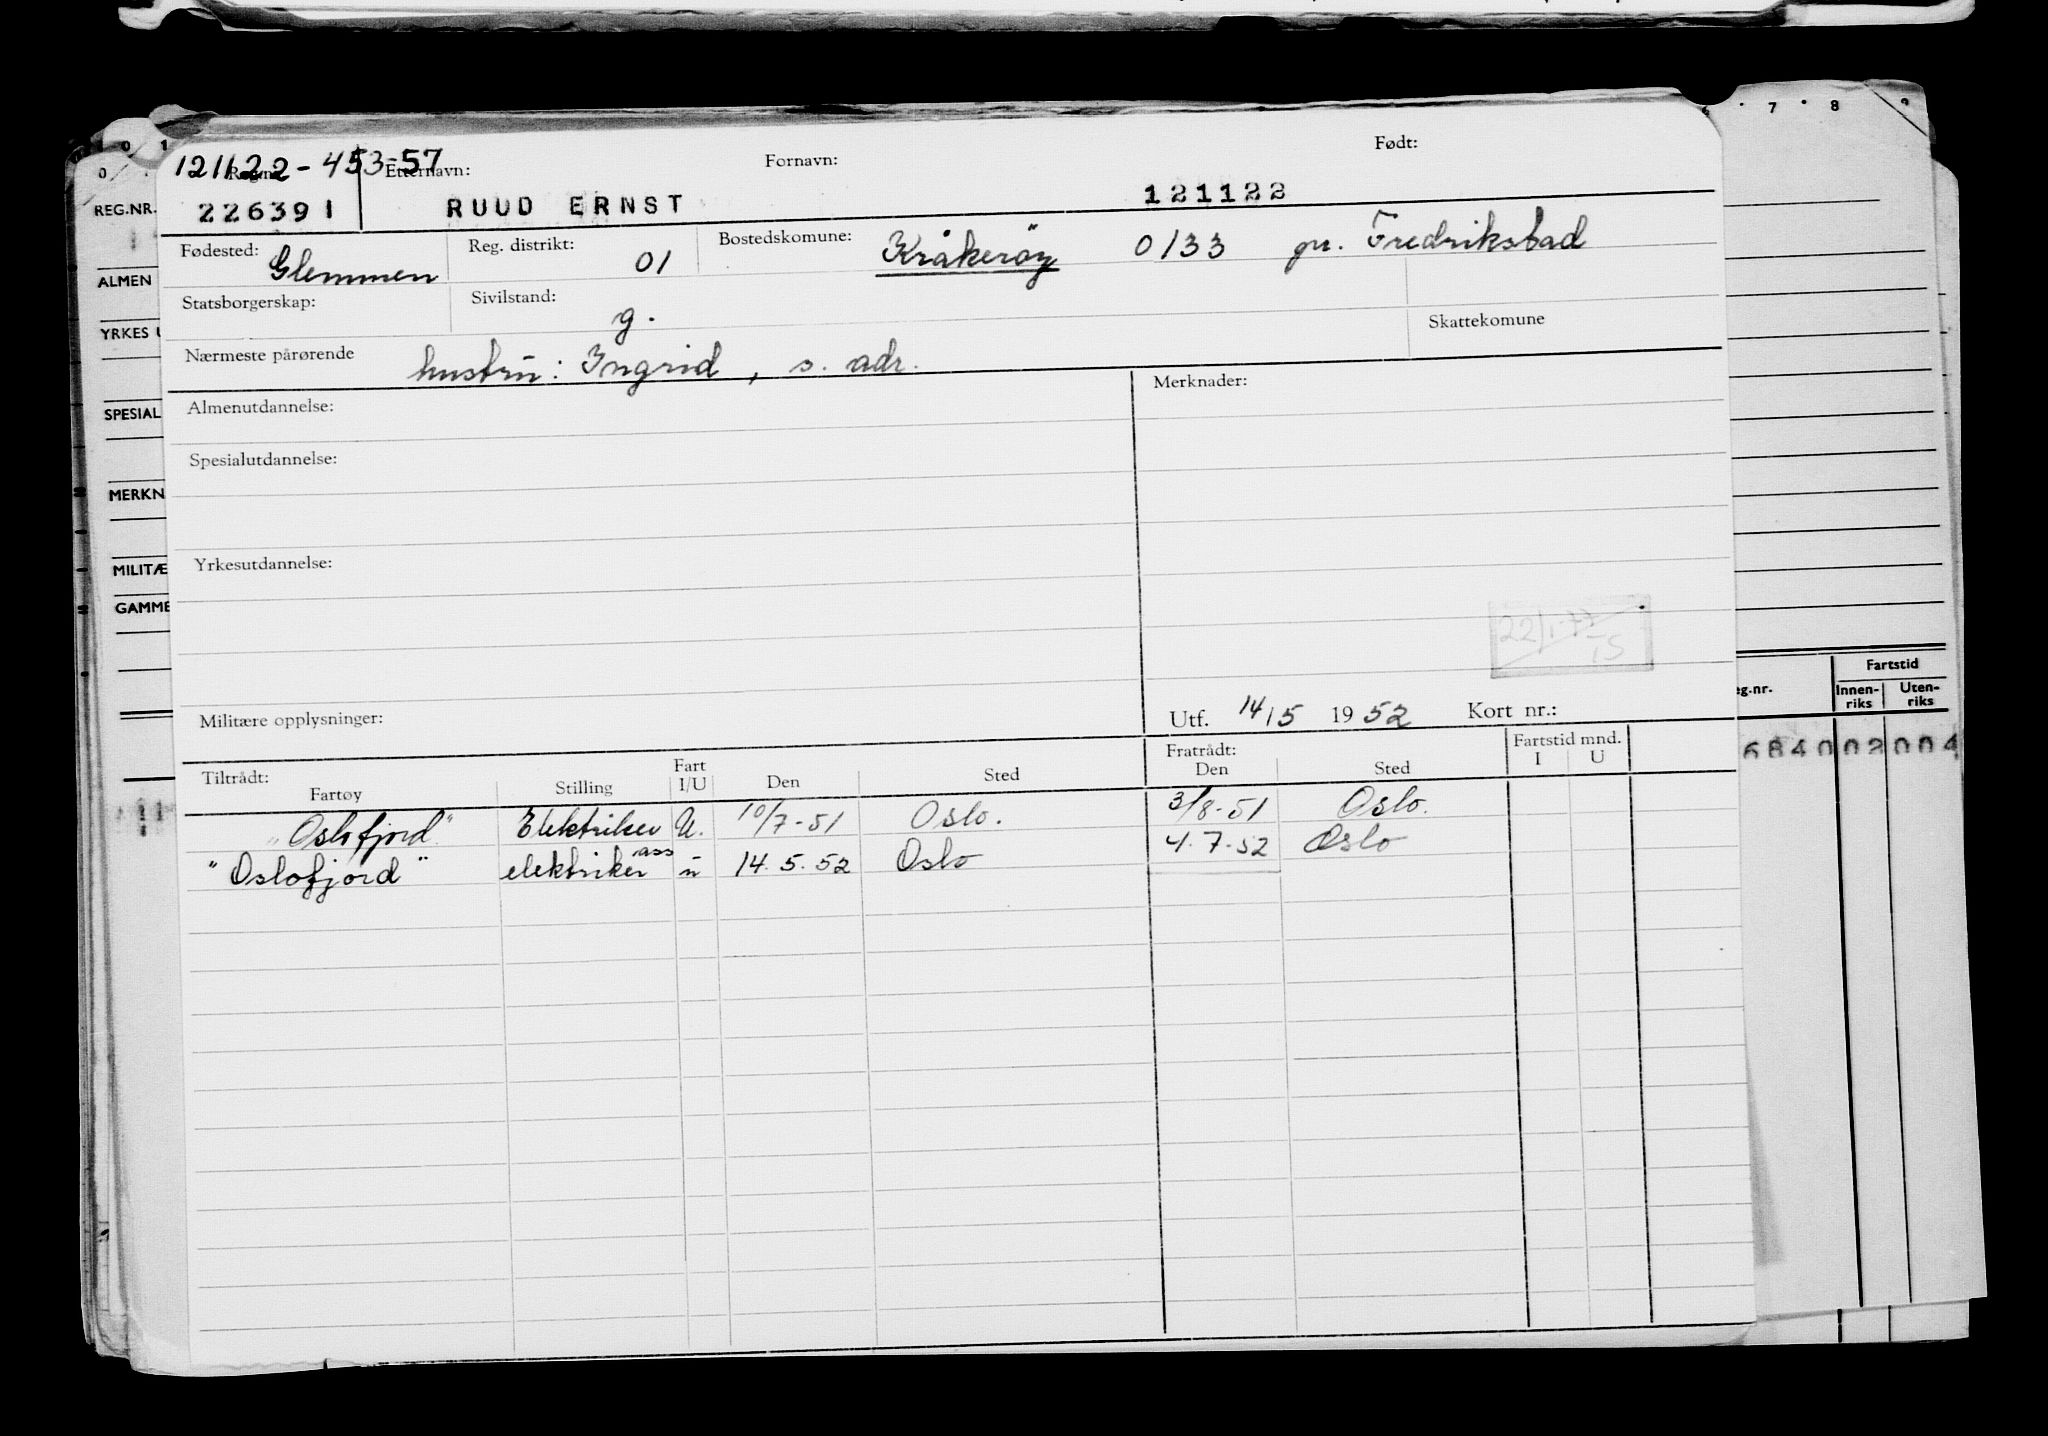 0 1 7 8
121122-453-57
Regnr. Etternavn: Fornavn: Født:
REG.NR. 226391 RUUD ERNST 121122
Fødested: Glemmen Reg. distrikt: 01 Bostedskomune: Kråkeröy 0133 pr. Fredrikstad
ALMEN
Statsborgerskap: Sivilstand: g. Skattekomune
YRKES U
Nærmeste pårørende hustru: Ingrid, s. adr.
Almenutdannelse: Merknader:
SPESIAL
Spesialutdannelse:
MERKN
Yrkesutdannelse:
MILITÆ
GAMME
22/1-77
Fartstid
eg.nr. Innen-riks Uten-riks
Militære opplysninger: Utf. 14/5 1952 Kort nr.:
684002004
Tiltrådt: Fratrådt: Fartstid mnd.
Fartøy Stilling Fart I/U Den Sted Den Sted I U
"Oslofjord" Elektriker U. 10/7-51 Oslo. 3/8-51 Oslo.
"Oslofjord" elektriker ass u 14.5.52 Oslo 4.7-52 Oslo